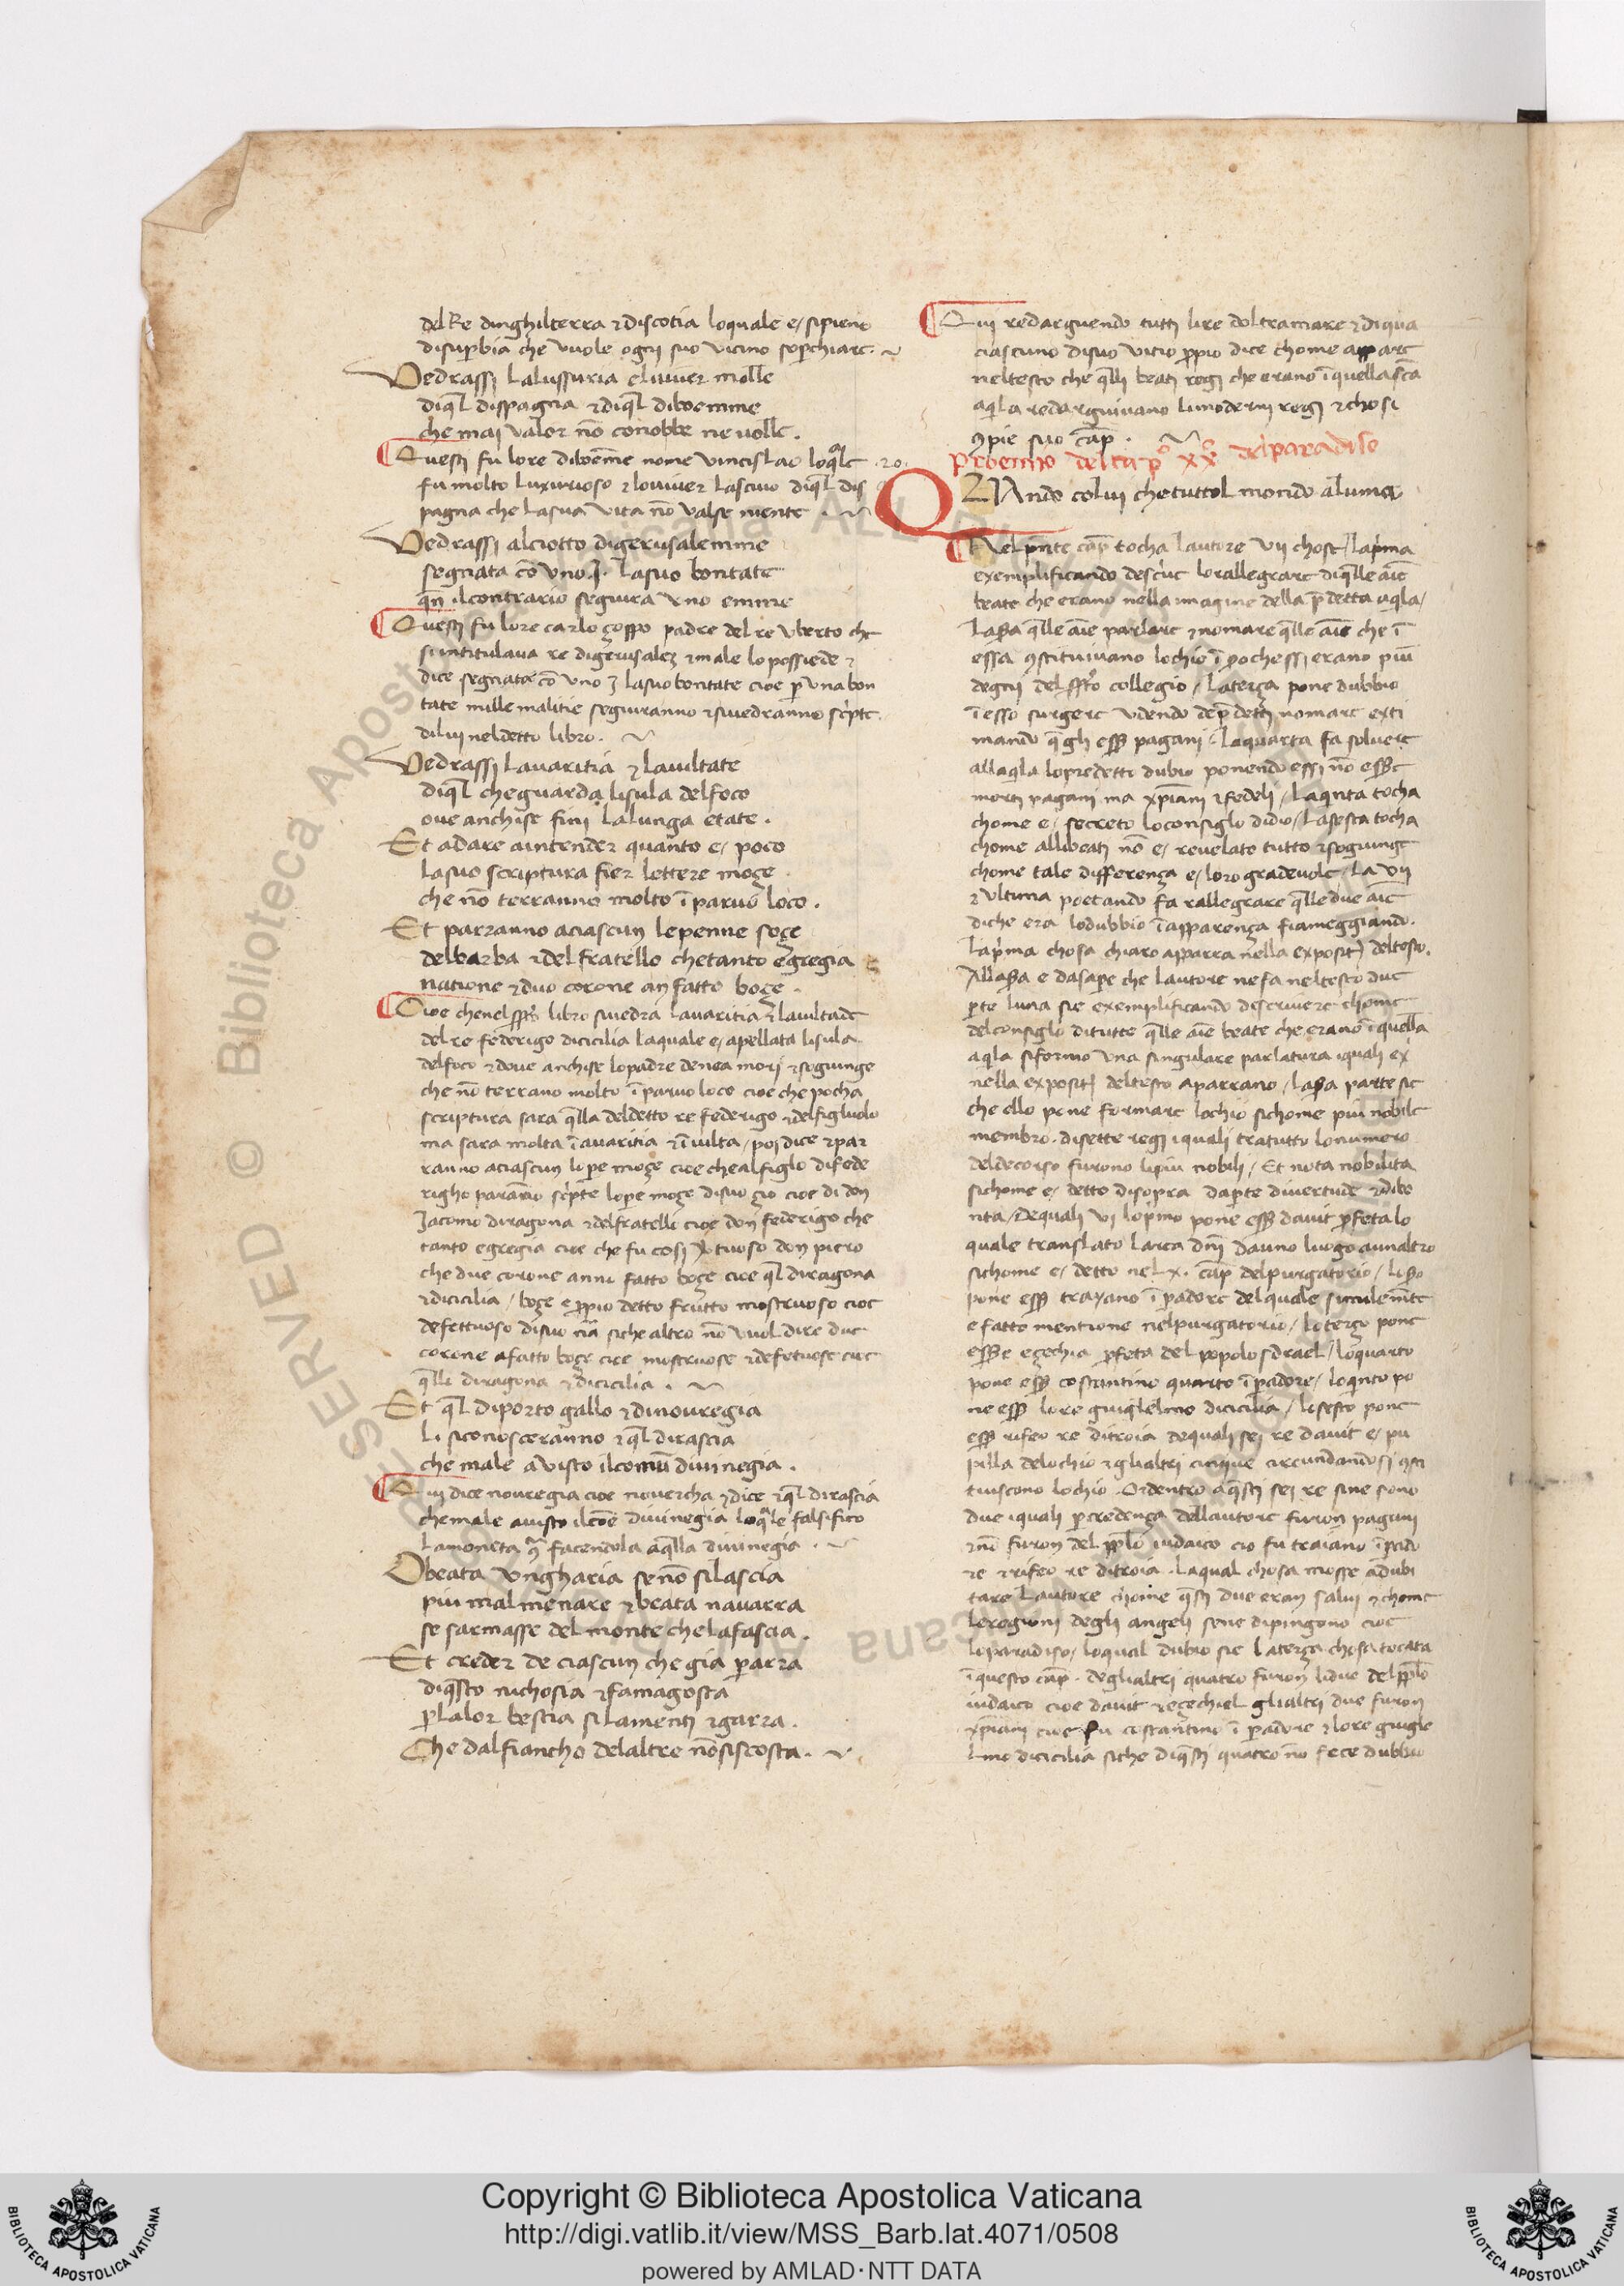 del Re dinghilterra ⁊ discotia loquale e/ si pieno
disuꝑbia che vuole ogni suo vicino soꝑchiare.
Vedrassi la lussuria eluiuer molle
diq̄l dispagna ⁊ diq̄l diboemme
che mai valor nō conobbe ne volle.
Questi fu lore diboem̄e nome vincislao loq̄le
fu molto luxurioso ⁊ louiuer lasciuo diq̄l dis
pagna che lasua vita nō valse niente
Vedrassi alciotto digerusalemme
segnata cō uno .J. lasuo bontate
qn̄ ilcontrario seguira vno emme
Questi fu lore carlo çoppo padre del re vberto che
sintitulaua re digerusalē ⁊ male lo possiede ⁊
dice segnata cō uno J lasuo bontate cioe ꝑ una bon
tate mille malitie seguiranno ⁊ siuedranno sc̄pte
dilui neldetto libro.
Vedrassi lauaritia ⁊ lauiltate
diq̄l cheguarda lisula delfoco
oue anchise fini lalunga etate.
Et adare aintender quanto e/ poco
lasuo scriptura fier lettere moçe
che nō terranno molto ī paruo loco.
Et parranno aciascun lepenne soçe
delbarba ⁊ del fratello chetanto egregia
natione ⁊ duo corone an fatto boçe.
Cioe chenel libro siuedra lauaritia ⁊ lauiltade
delre federigo dicicilia laquale e/ apellata lisula
delfoco ⁊ doue anchise lopadre denea mori ⁊ sogiunge
che nō terrano molto ī paruo loco cioe che pocha
scriptura sara q̄lla deldetto re federigo ⁊ delfigliuolo
ma sara molta ī auaritia ⁊ ī uilta/ poi dice ⁊ par
ranno aciascun lope moçe cioe chealfiglo difede
righo paranno sc̄pte lope moçe disuo çio cioe di don
Jacomo diragona ⁊ delfratello cioe don federigo che
tanto egregia cioe che fu cosi v̄tuoso don piero
che due corone anno fatto boçe cioe q̄l diragona
⁊ dicicilia/ boçe e ꝓpio detto frutto mostruoso cioe
defettuoso disuo siche altro nō vuol dire due
corone afatto boçe cioe mostruose ⁊ defetuose cioe
q̄lle diragona ⁊ dicicilia.
Et q̄l diporto gallo ⁊ dinouregia
li siconosceranno ⁊ q̄l dirascia
che male a visto ilconiū diuinegia.
Qui dice nouregia cioe nouercha ⁊ dice ⁊ q̄l dirascia
chemale auisto ilcōe diuinegia loq̄le falsifico
lamoneta facendola aq̄lla diuinegia.
O beata vngharia senō silascia
piu malmenare ⁊ beata nauarra
se sarmasse del monte chelafascia.
Et creder de ciascun che gia ꝑarra
diq̄sto nichosia ⁊ famagosta
ꝑ lalor bestia silamenti ⁊ garra.
Che dalfiancho delaltre nōsiscosta.
Qui redarguendo tutti lire doltramare ⁊ diqua
ciascuno disuo vitio ꝓpio dice chome appare
neltesto che q̄lli beati regi che erano ī quellasc̄a
aq̄la redarguiuano limoderni regi ⁊ chosi
ꝯpie suo cap̄.
Proemio delcap̄o xxo delparadiso
.20. QUAndo colui chetuttol mondo aluma
Nelpn̄te cap̄ tocha lautore vij chose/ lap̄ma
exemplificando desc̄iue lorallegrare diq̄lle aīe
beate che erano nella imagine della p̄detta aq̄la/
la 2a q̄lle aīe parlare ⁊ nomare q̄lle aīe che ī
essa ꝯstituiuano lochio ī ꝑochessi erano piu
degni del collegio/ laterça pone dubbio
ī esso surgere vdendo dep̄detti nomare exti
mando q̄gli ess̄ pagani. laquarta fa soluere
allaq̄la lopredetto dubio ponendo essi nō ess̄e
morti pagani ma xp̄iani ⁊ fedeli/ laq̄nta tocha
chome e/ secreto loconsiglo didio/ lasesta tocha
chome allibeati nō e/ reuelato tutto ⁊ sogiunge
chome tale differença e/ loro gradeuole/ la vij
⁊ vltima poetando fa rallegrare q̄lle due aīe
diche era lodubbio ī apparença fiameggiando.
lap̄ma chosa chiaro apparra nella exposit̄ deltesto.
Alla 2a e dasaꝑe che lautore nefa neltesto due
ꝑte luna sie exemplificando descriuere chome
delconsiglo ditutte q̄lle aīe beate che erano ī quella
aq̄la siformo una singulare parlatura iquali ex̄
nella exposit̄ deltesto aparrano/ la 2a parte sie
che ello pone formare lochio sichome piu nobile
membro. disette regi iquali tratutto lonumero
deldecorso furono lipiu nobili/ Et nota nobilita
sichome e/ detto disopra daꝑte diuertude ⁊ dibo
nta/ Dequali vi lop̄mo pone ess̄ dauit ꝓfeta lo
quale translato larca dn̄i dauno luogo aunaltro
sichome e/ detto nel x. cap̄ delpurgatorio/ lo 2o
pone ess̄ trayano ī ꝑadore del quale similem̄te
e fatto mentione nelpurgatorio/ loterço pone
ess̄e eçechia ꝓfeta del popolo sdrael/ loquarto
pone ess̄ costantino quarto ī ꝑadore/ loq̄nto po
ne ess̄ lore giuglielmo dicicilia/ losesto pone
ess̄ rifeo re ditroia dequali sei re dauit e/ pu
pilla delochio ⁊ glialtri cinque circundandosi ꝯsti
tuiscono lochio. Ordentro aq̄sti sei re sine sono
due iquali ꝑ credença dellautore furon pagani
⁊ nō furon del pp̄lo iudaico cio fu traiano ī ꝑado
re ⁊ rifeo re ditroia. laqual chosa mosse adubi
tare lautore chome q̄sti due eran salui ⁊ chome
leregioni degli angeli sene dipingono cioe
loparadiso/ loqual dubio sie laterça chosa tocata
ī questo cap̄. deglialtri quatro furon lidue del pp̄lo
iudaico cioe dauit ⁊ eçechiel glialtri due furon
xp̄iani cioe fu costantino ī ꝑadore ⁊ lore giugle
lmo dicicilia siche diq̄sti quatro nō fece dubbio
Copyright © Biblioteca Apostolica Vaticana
http://digi.vatlib.it/view/MSS_Barb.lat.4071/0508
powered by AMLAD·NTT DATA